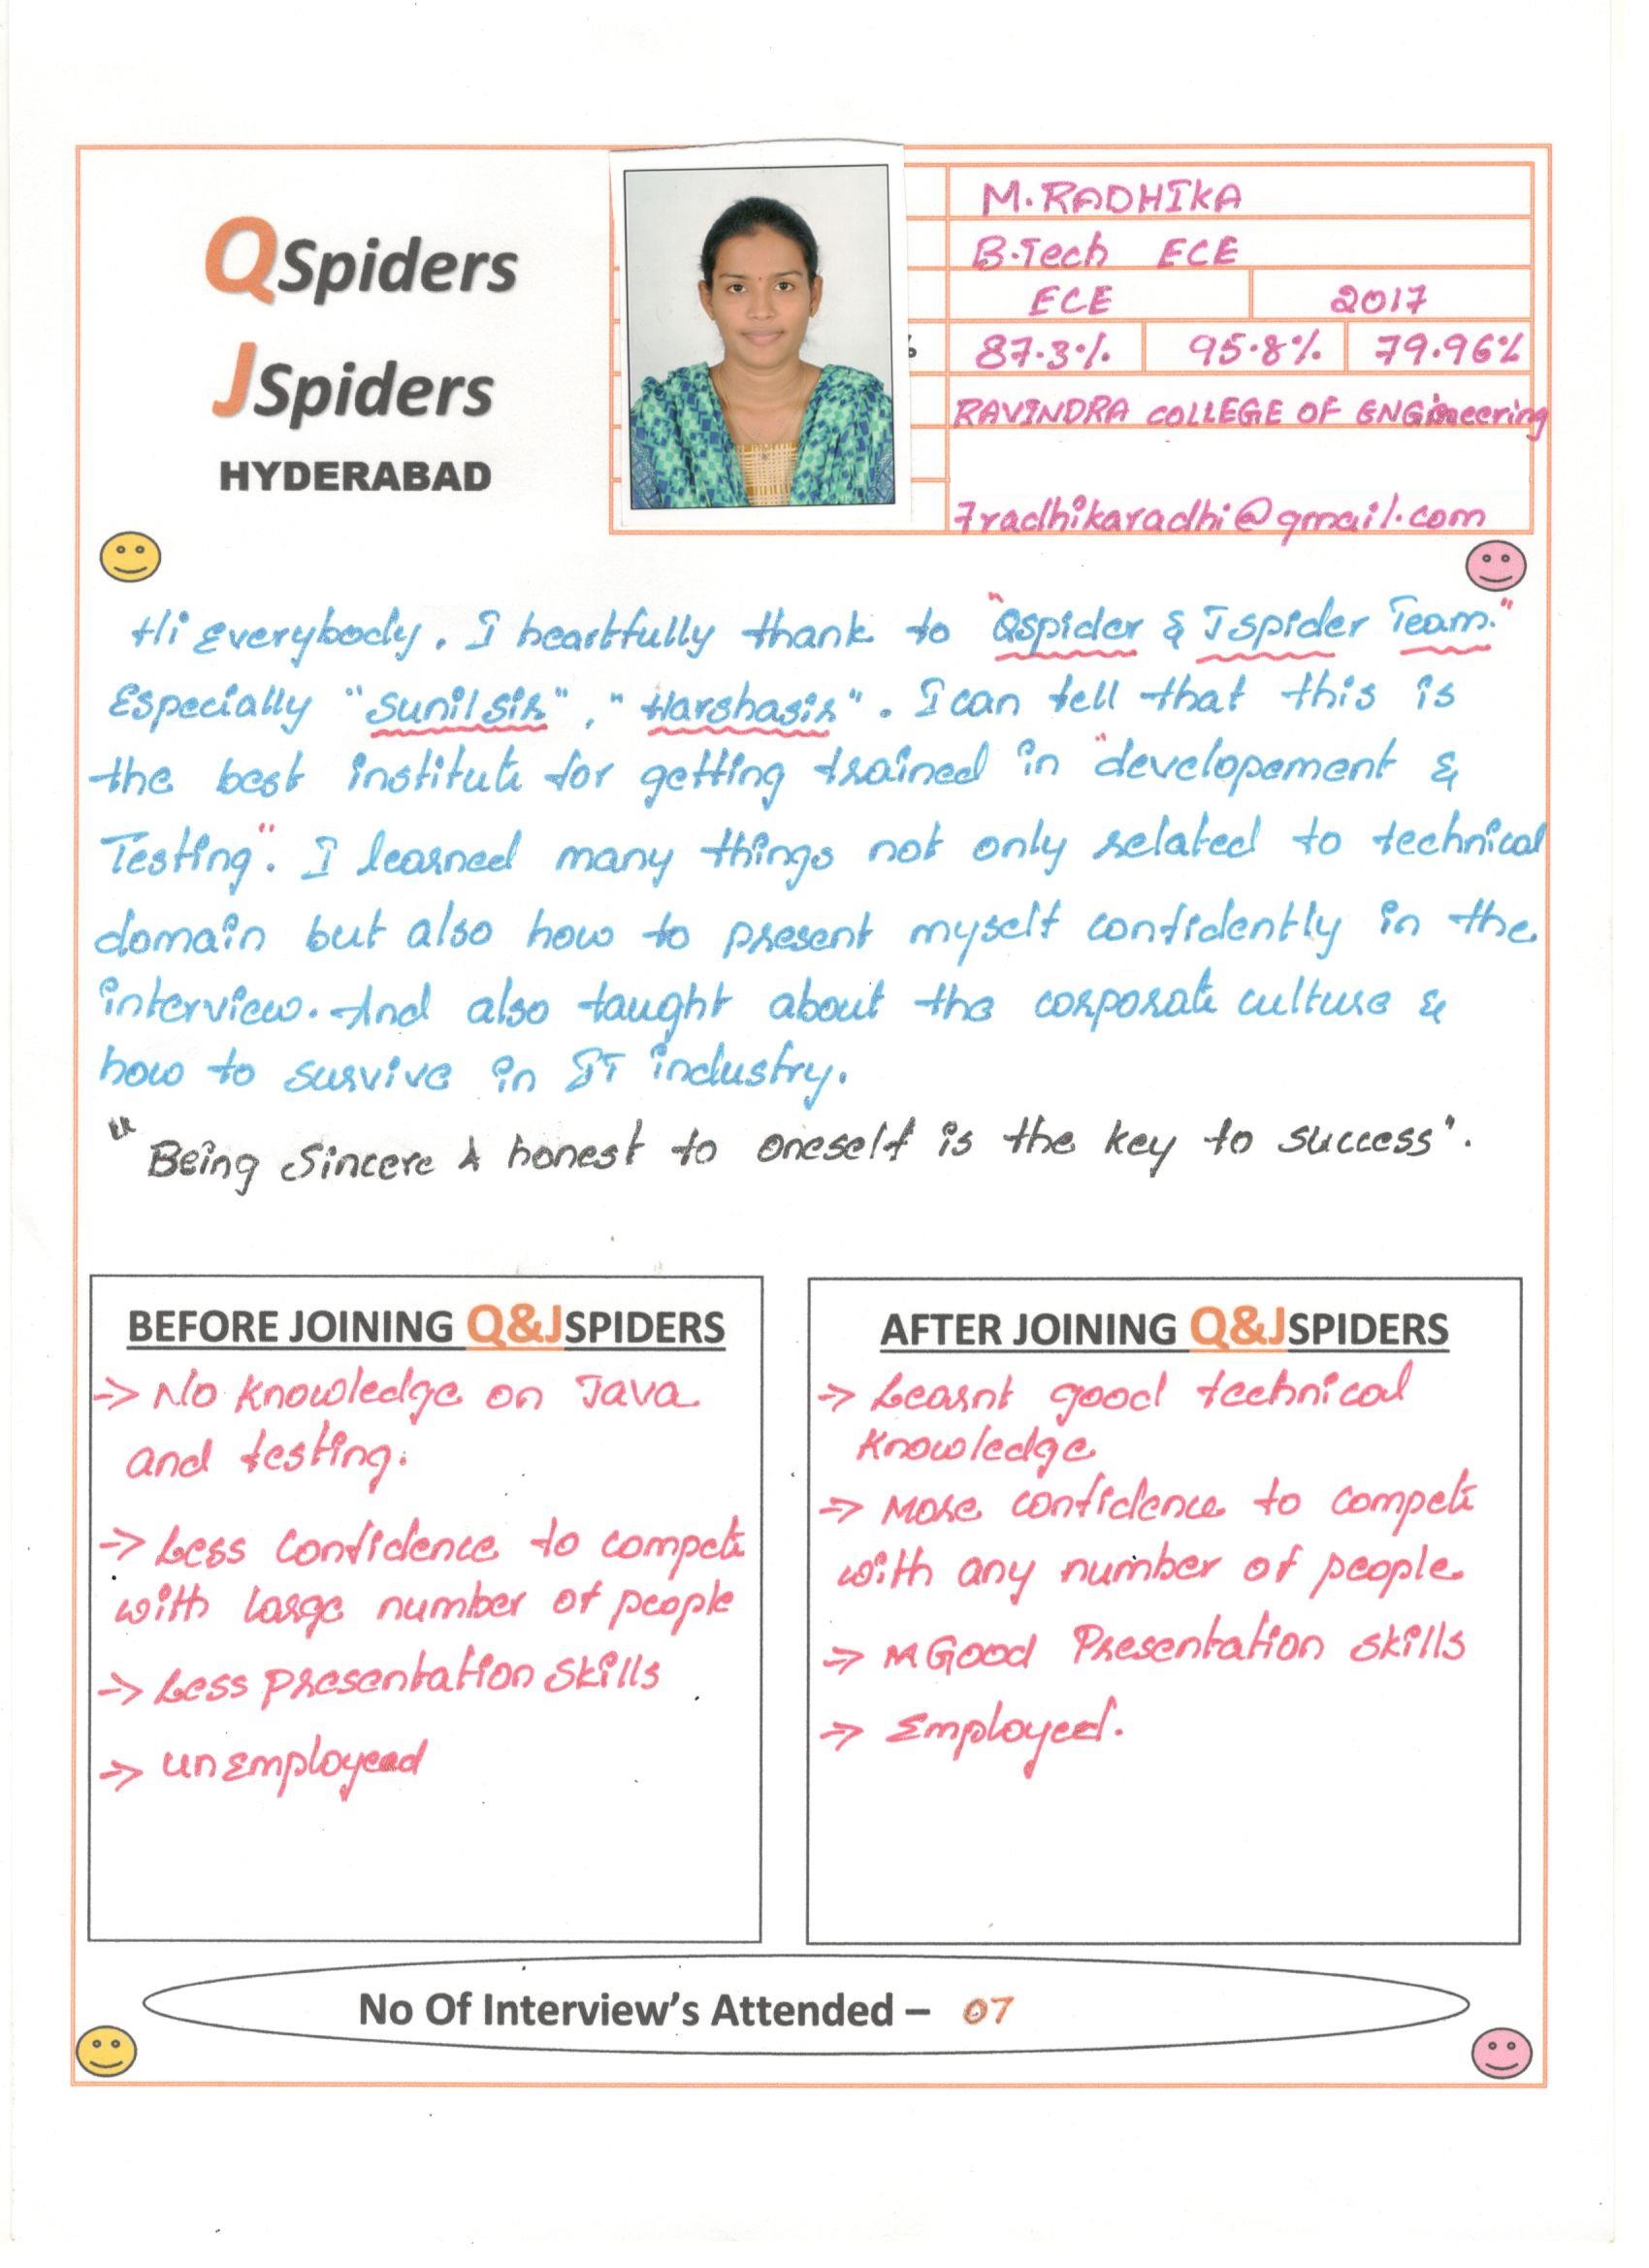 QSpiders
JSpiders
HYDERABAD
M.RADHIKA
B.Tech ECE
ECE 2017
87.3% 95.8% 79.96%
RAVINDRA COLLEGE OF ENGineering
7radhikaradhi@gmail.com
Hi Everybody. I heartfully thank to "Qspider & Jspider Team."
Especially "Sunil sir", "Harshasir". I can tell that this is
the best institute for getting trained in "developement &
Testing". I learned many things not only related to technical
domain but also how to present myself confidently in the
interview. And also taught about the corporate culture &
how to survive in IT industry.
"Being Sincere & honest to oneself is the key to success".
BEFORE JOINING Q&JSPIDERS
-> No knowledge on Java
and testing.
-> Less Confidence to compete
with large number of people
-> Less presentation skills
-> unEmployeed
AFTER JOINING Q&JSPIDERS
-> Learnt good technical
knowledge
-> More confidence to compete
with any number of people
-> Good Presentation skills
-> Employeed.
No Of Interview's Attended – 07